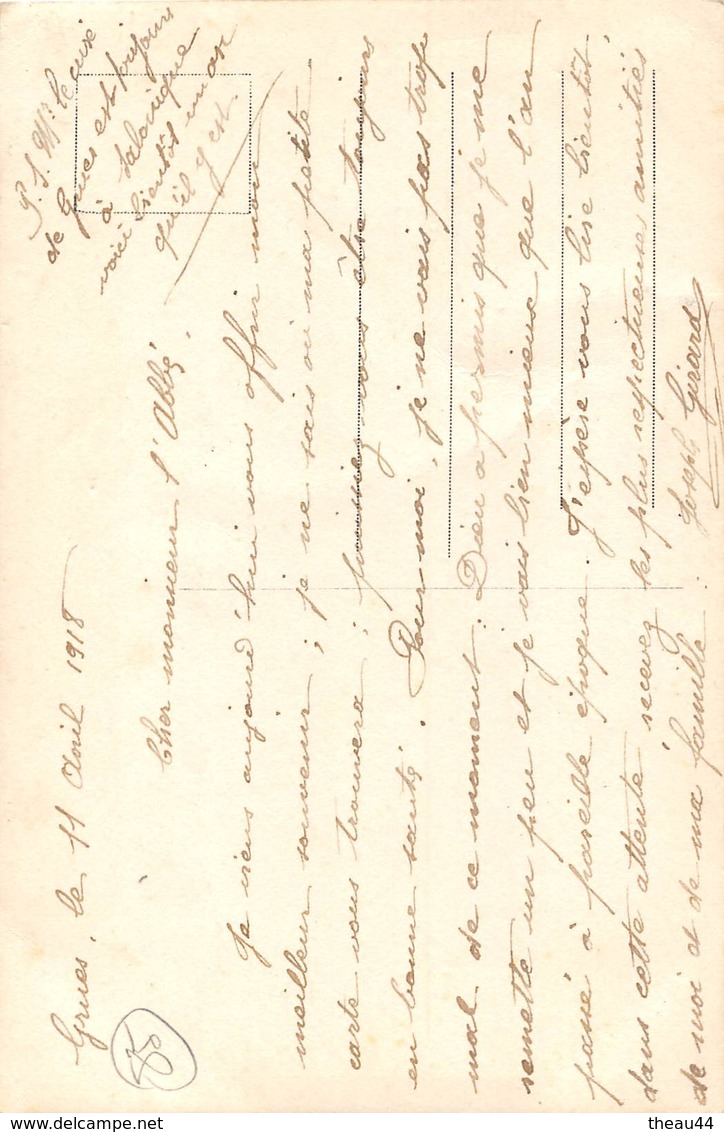 Grues, le 11 Avril 1918
Cher monsieur l'Abbé,
Je viens aujourd'hui vous offrir mon
meilleur souvenir ; je ne sais où ma petite
carte vous trouvera ; puissiez-vous être toujours
en bonne santé. Pour moi, je ne vais pas trop
mal de ce moment. Dieu a permis que je me
remette un peu et je vais bien mieux que l'an
passé à pareille époque. J'espère vous lire bientôt,
dans cette attente recevez les plus respectueuses amitiés
de moi et de ma famille.
Joseph Girard
P. S. Mr le curé
de Grues est toujours
à Salonique
voici bientôt un an
qu'il y est.
85
theau44